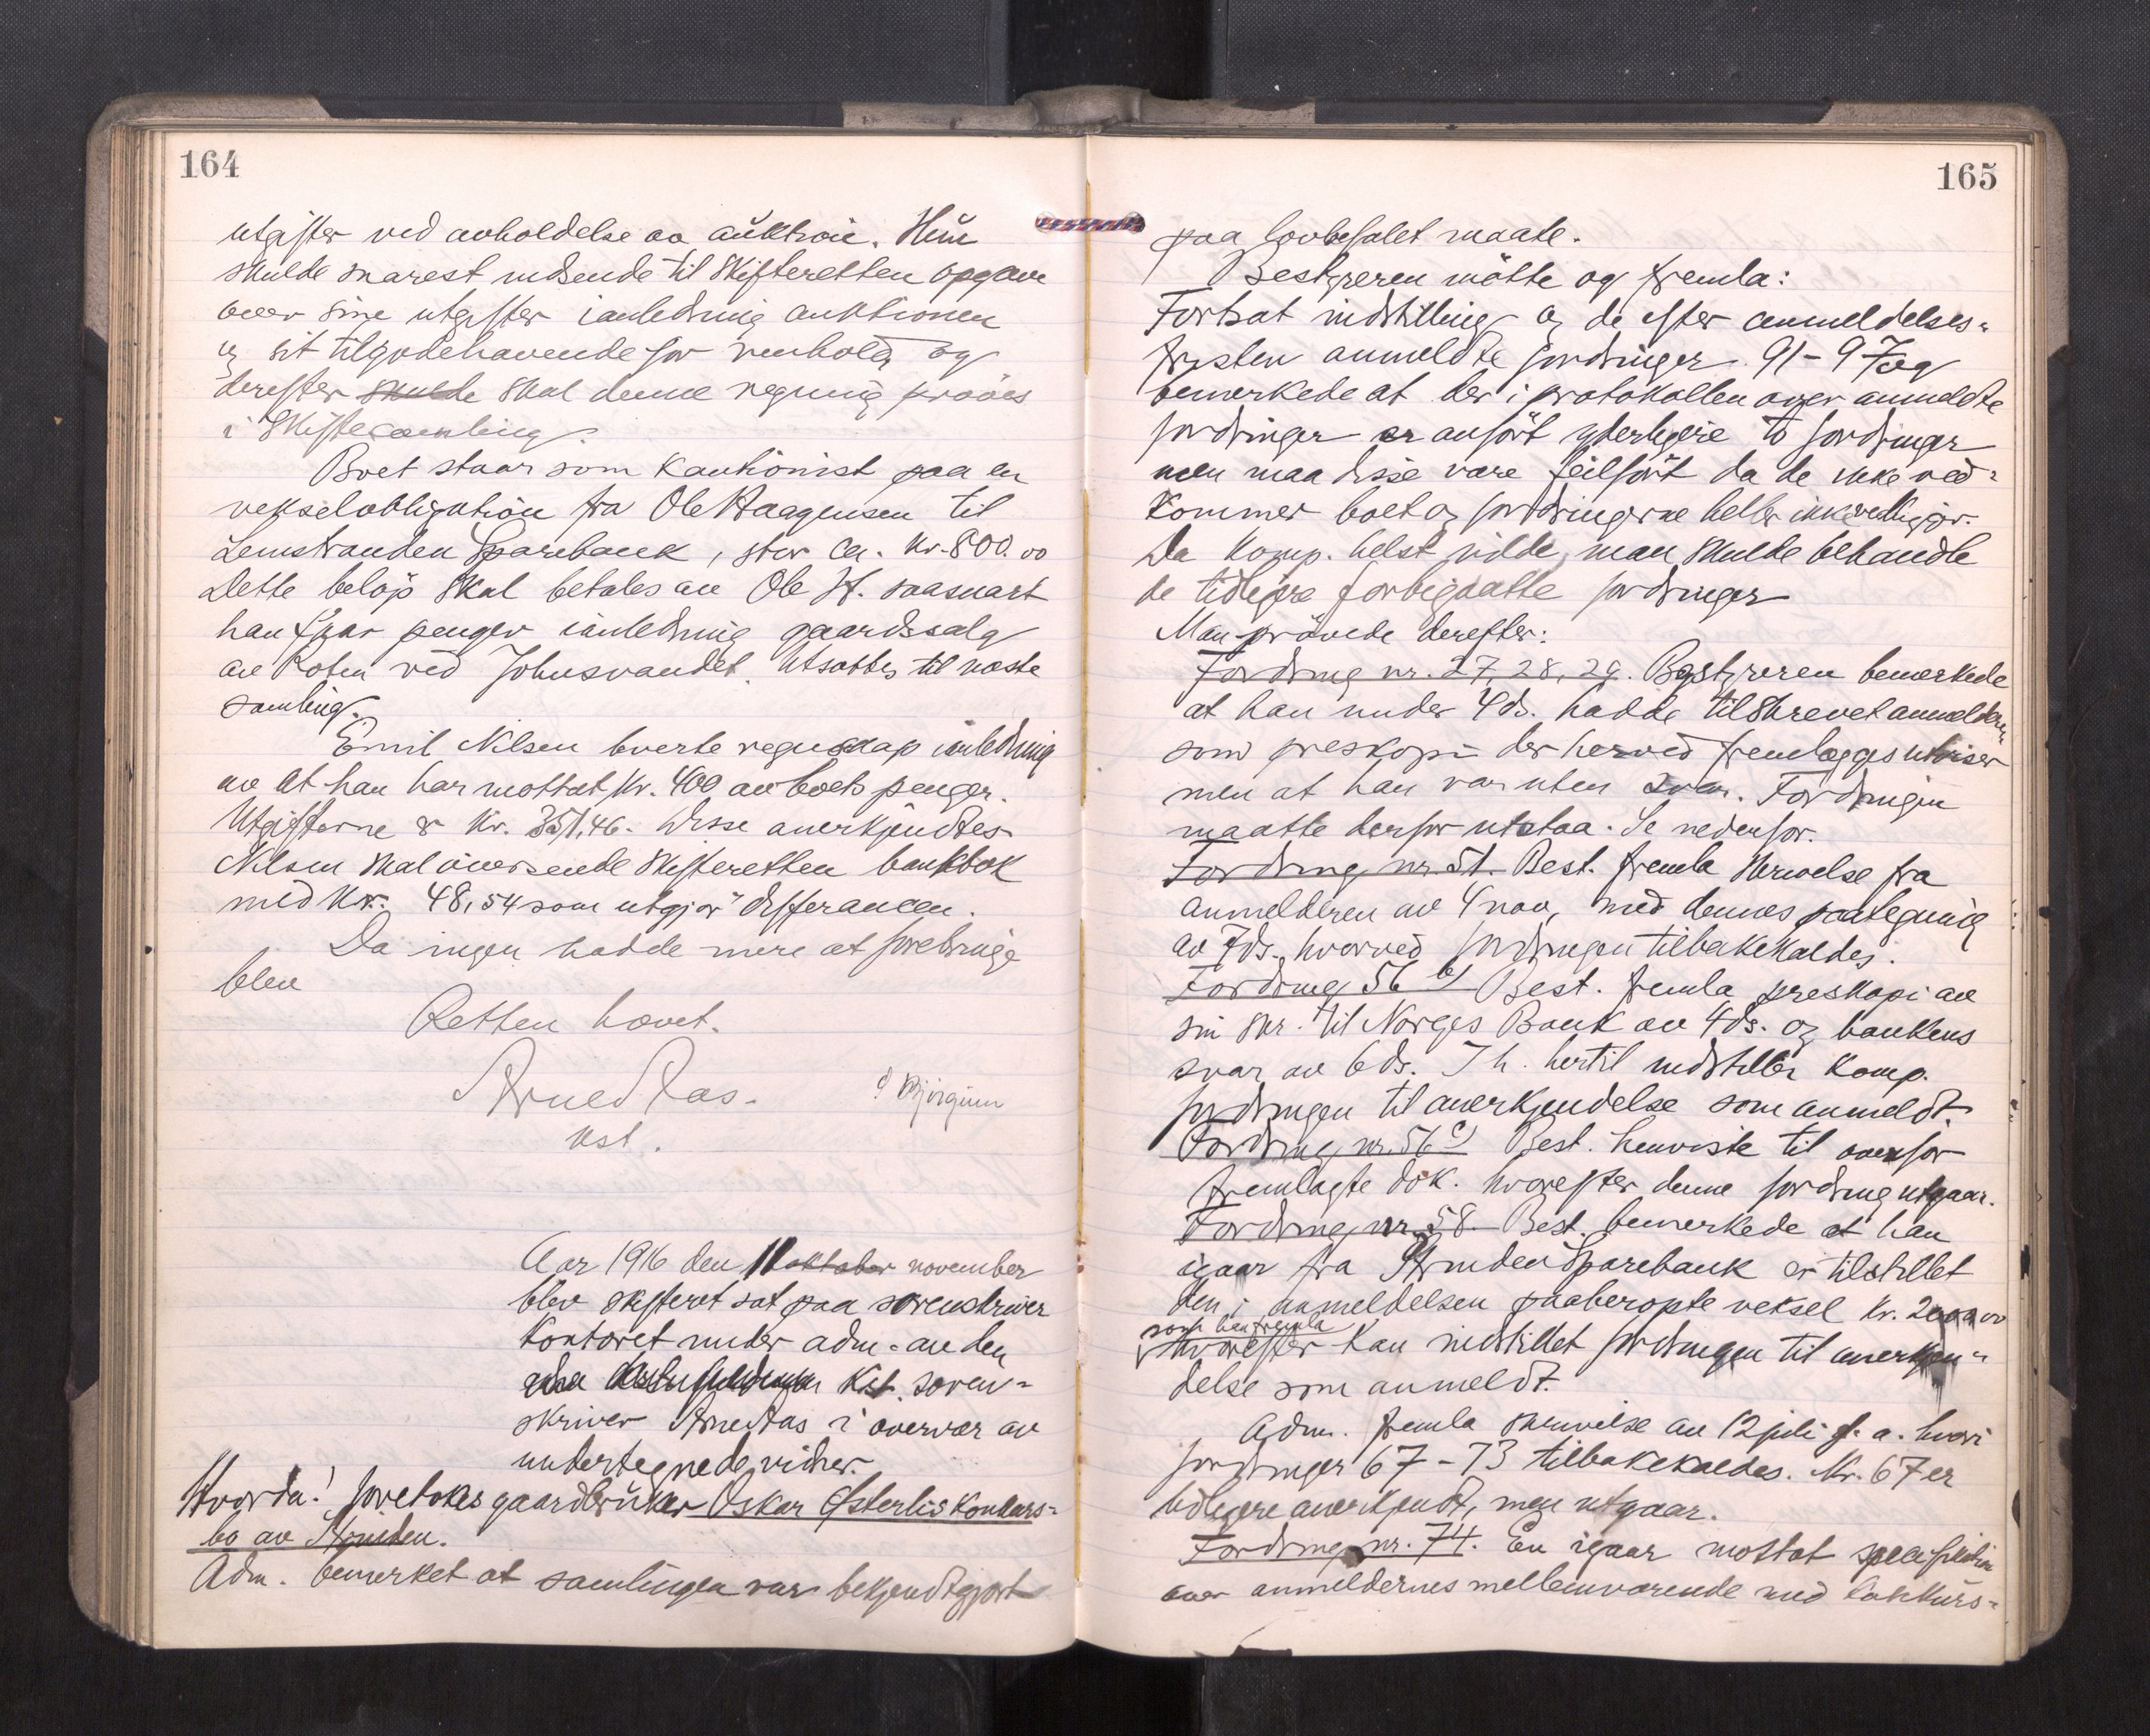 164
utgifter ved avholdelse av auktion. Hun
skulde snarest indsende til skifteretten opgave
over sine utgifter i anledning auktionen
og sit tilgodehavende for renhold og
derefter skulde skal denne regning prøves
i skiftesamling.
Boet staar som kautionist paa en
vekselobligation fra Ole Haagensen til
Lenstranden Sparebank, stor ca. kr. 800.00
Dette beløp skal betales av Ole H. saasnart
han faar penger i anledning gaardssalg
av Koten ved Johnsvandet. Utsattes til næste
samling.
Emil Nilsen leverte regnskap i anledning
av at han har mottat kr. 400 av boets penger.
Utgifterne er kr. 351,46. Disse anerkjendtes
Nilsen skal oversende skifteretten bankbok
med kr. 48,54 som utgjør differancen.
Da ingen hadde mere at frembringe
blev
Retten hævet.
Arne Aas.
kst.
Aar 1916 den 11 oktober november
blev skifteret sat paa sorenskriver
kontoret under adm. av den
kst. soren-
skriver Arne Aas i overvær av
undertegnede vidner.
Hvorda! foretokes gaardbruker Oskar Østerlis konkurs-
bo av Strinden.
Adm. bemerket at samlingen var bekjendtgjort
165
paa lovbefalet maate.
Bestyreren møtte og fremla:
Fortsat indstilling og de efter anmeldelses-
fristen anmeldte fordringer 91-97 og
bemerkede at der i protokollen over anmeldte
fordringer er anført yderligere to fordringer
men maa disse være feilført da de ikke ved-
kommer boet og fordringerne heller ikke vedligger.
Da komp. helst vilde, man skulde behandle
de tidligere forbigaatte fordringer
Man prøvede derefter:
Fordring nr. 27, 28, 29. Bestyreren bemerkede
at han under 4 ds. hadde tilskrevet anmelderen
som preskopi der herved fremlægges utviser
men at han var uten svar. Fordringen
maatte derfor utstaa. Se nedenfor.
Fordring nr. 51. Best. fremla skrivelse fra
anmelderen av 4 nov, med dennes paategning
av 7 ds. hvorved fordringen tilbakekaldes.
Fordring 56 b) Best. fremla preskopi av
sin skr. til Norges Bank av 4 ds. og bankens
svar av 6 ds. I h. hertil indstiller komp.
fordringen til anerkjendelse som anmeldt.
Fordring nr. 56 c) Best. henviste til ovenfor
fremlagte dok. hvorefter denne fordring utgaar.
Fordring nr. 58. Best. bemerkede at han
igaar fra Strinden Sparebank er tilstillet
den i anmeldelsen paaberopte veksel kr. 2000.00
som han fremla
hvorefter han indstillet fordringen til anerkjen-
delse som anmeldt.
Adm. fremla skrivelse av 12 juli d. a. hvori
fordringer 67-73 tilbakekaldes. Nr. 67 er
tidligere anerkjendt, men utgaar.
Fordring nr. 74. En igaar mottat specifikation
over anmeldernes mellemværende med konkurs-